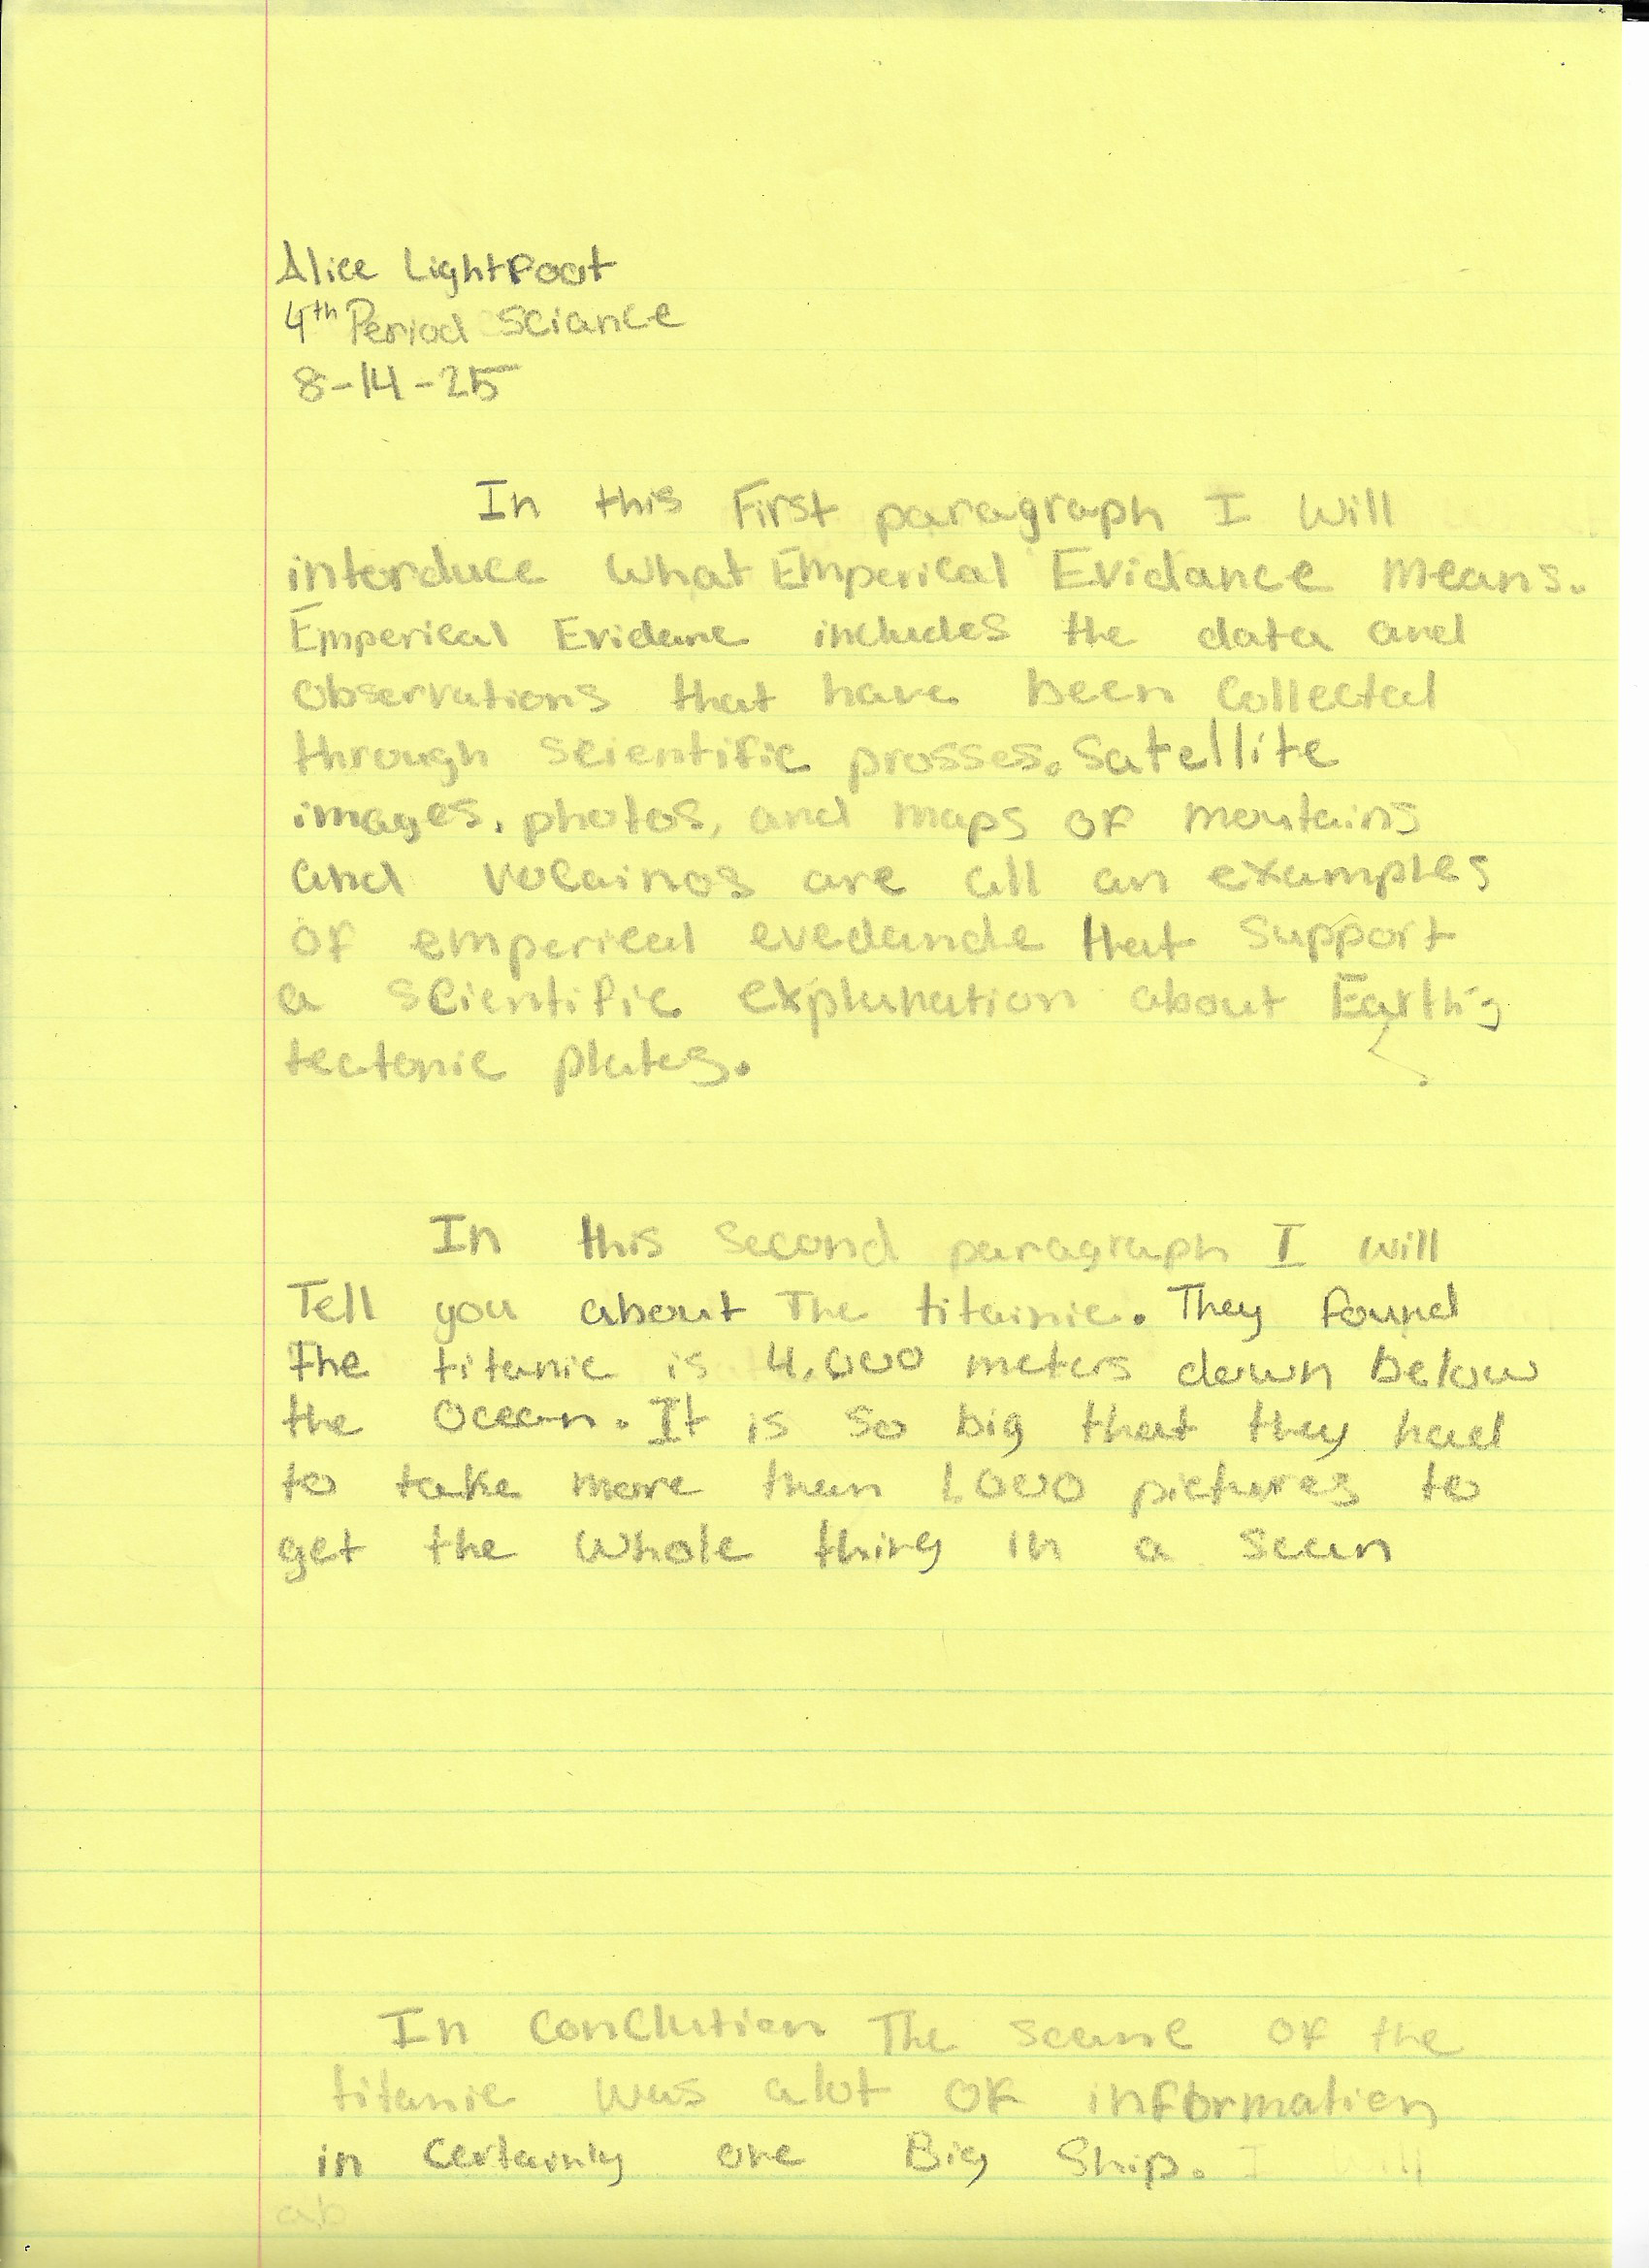 Alice Lightfoot
4th Period Sciance
8-14-25
In this First paragraph I Will
interduce What Emperical Evidance means.
Emperical Evidane includes the data and
observations that have been Collected
through scientific prosses. Satellite
images, photos, and maps of mountains
and volcainos are all an examples
of emperical evedande that support
a scientific explanation about Earth's
tectonic plates.
In this second paragraph I will
Tell you about The titainic. They found
the titanic is 4,000 meters down below
the Ocean. It is so big that they had
to take more than 1,000 pictures to
get the whole thing in a scan
In Conclution The scane of the
titanic was alot of information
in certainly one Big Ship. I will
ab